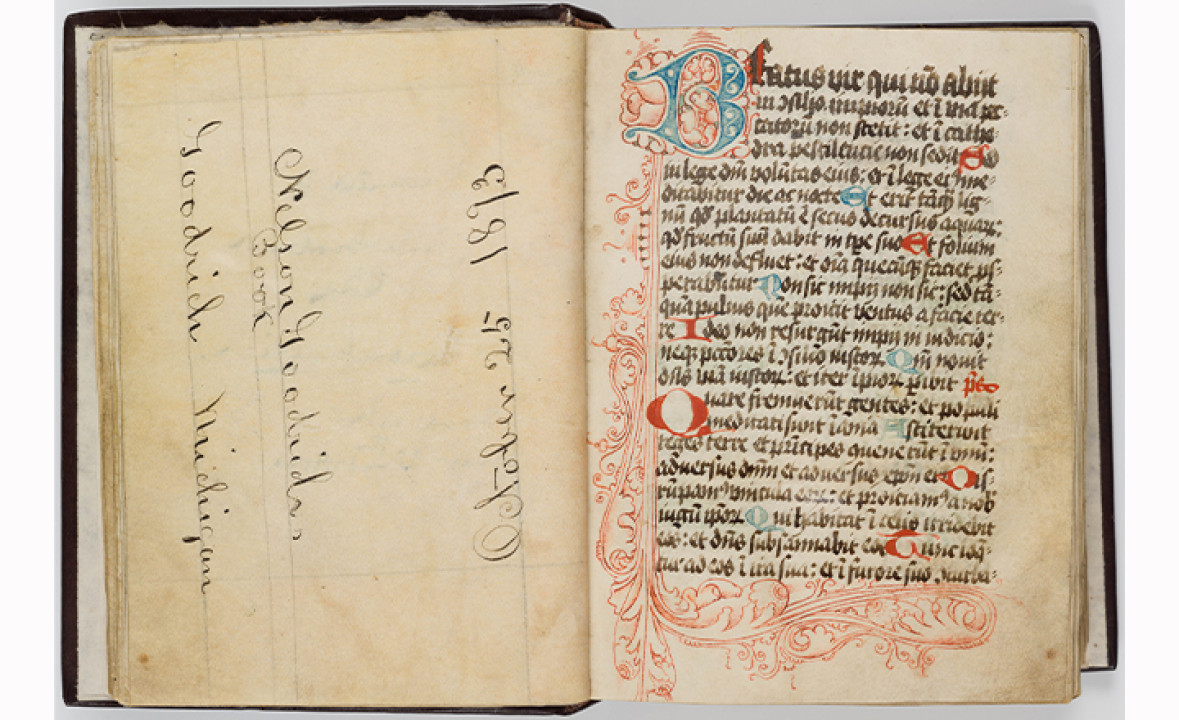 Goodrich Michigan
Nelson Goodrich's
Book
October 25 1813
Beatus vir qui nō abiit
in ɔsilio impiorū et ī via pec-
catorū non stetit : et ī cathe-
dra pestilencie non sedit Sed
in lege dnī volūtas eius : et ī lege eꝰ me-
ditabitur die ac nocte Et erit tāqͣ lig-
nū qd plantatū ē secus decursus aquarꝝ :
qd fructū suū dabit in tpe suo Et folium
eius non defluet : et oīa quecūqꝫ faciet ps-
perabūtur Non sic impii non sic : sed tā-
quā puluis que proicit ventus a facie ter-
re Ideo non resurgūt impii in iudicio :
neqꝫ pctores ī ɔsilio iustorꝝ Qm̄ novit
dn̄s viā iustorꝝ : et iter īpiorꝝ peribit ps
Quare fremuerūt gentes : et populi
meditati sunt īania Astiterunt
reges terre et prīcipes quenerūt ī vnū :
adversus dnm et adversus xpm eiꝰ Dis-
rūpamꝰ vincula eorꝝ : et proiciamꝰ a nob
iugū ipōrꝝ Qui habitat ī celis irridebit
eos : et dn̄s subsannabit eos Tunc loq-
tur ad eos ī ira sua : et ī furore suo ɔturba-